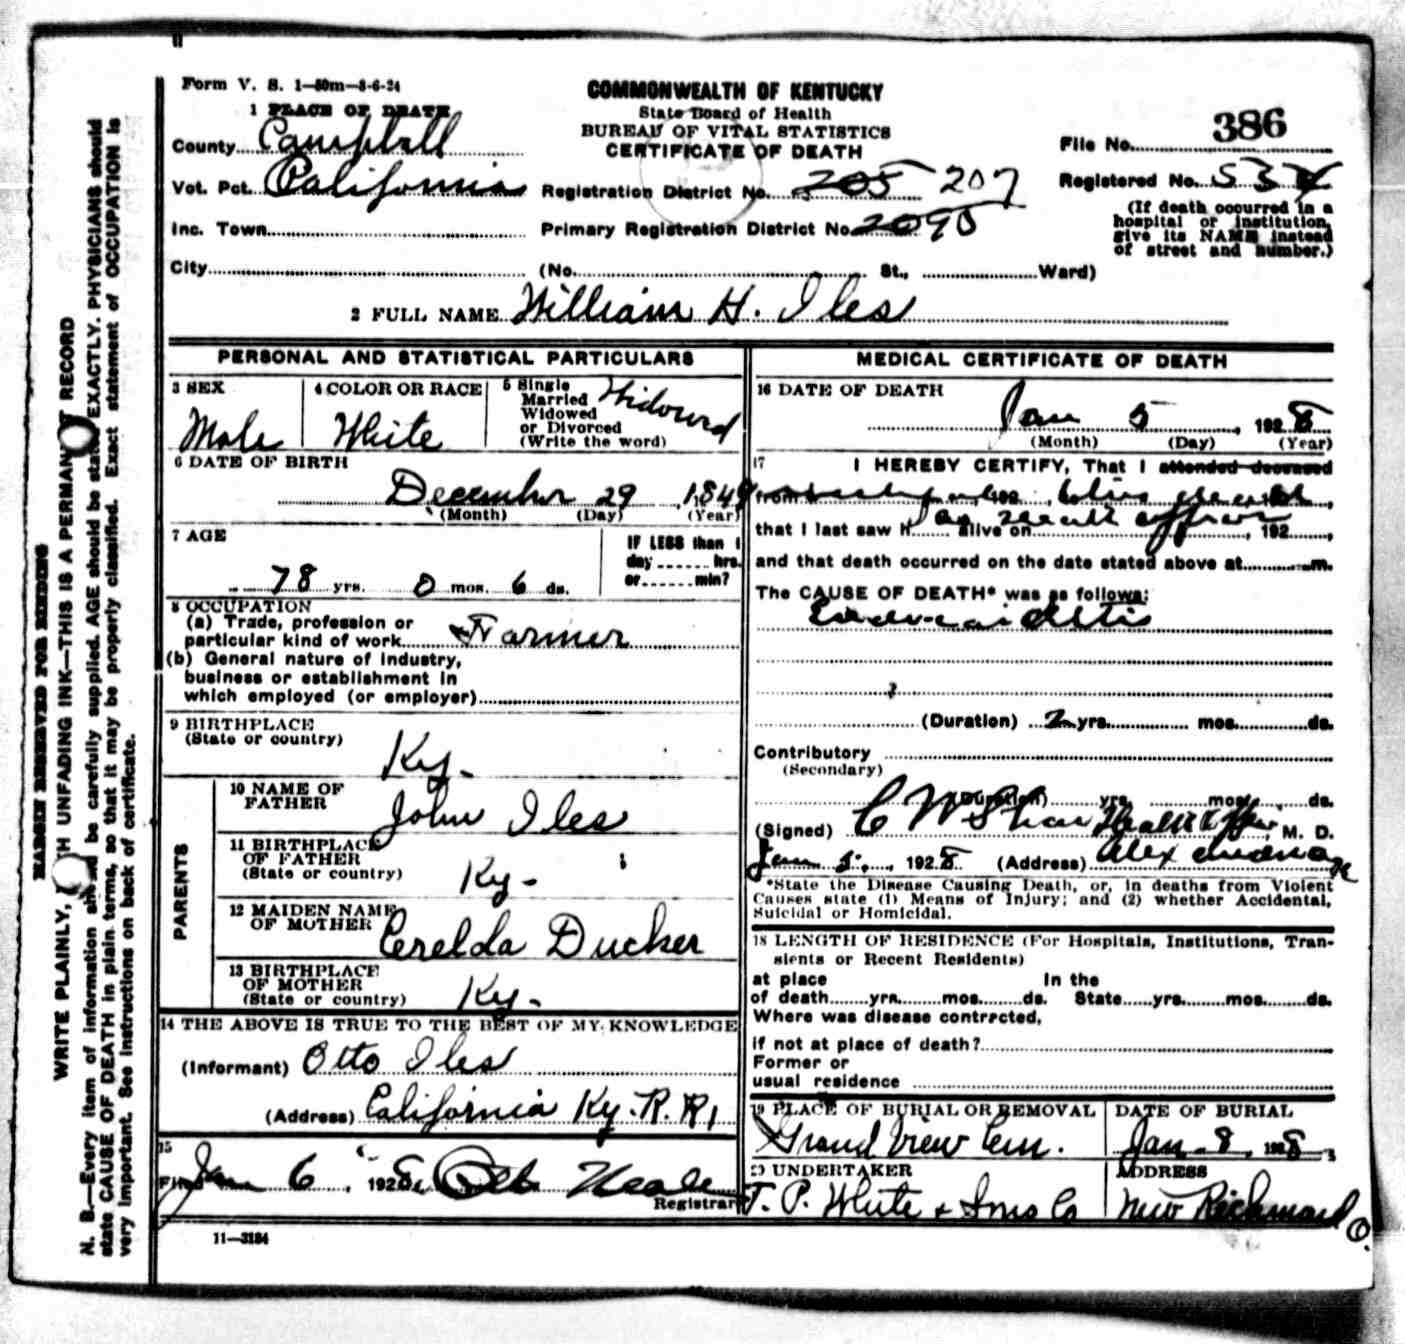 Form V. S. 1—50m—8-6-24
COMMONWEALTH OF KENTUCKY
State Board of Health
BUREAU OF VITAL STATISTICS
CERTIFICATE OF DEATH
1 PLACE OF DEATH
County Campbell
Vot. Pct. California
Inc. Town
City (No. St., Ward)
Registration District No. 205 207
Primary Registration District No. 2095
File No. 386
Registered No. 53
(If death occurred in a
hospital or institution,
give its NAME instead
of street and number.)
2 FULL NAME William H. Iles
PERSONAL AND STATISTICAL PARTICULARS
3 SEX
Male
4 COLOR OR RACE
White
5 Single
Married
Widowed
or Divorced
(Write the word)
Widowed
6 DATE OF BIRTH
December 29, 1849
(Month) (Day) (Year)
7 AGE
78 yrs. 0 mos. 6 ds.
IF LESS than 1
day hrs.
or min?
8 OCCUPATION
(a) Trade, profession or
particular kind of work Farmer
(b) General nature of industry,
business or establishment in
which employed (or employer)
9 BIRTHPLACE
(State or country)
Ky.
PARENTS
10 NAME OF
FATHER
John Iles
11 BIRTHPLACE
OF FATHER
(State or country)
Ky.
12 MAIDEN NAME
OF MOTHER
Cerelda Ducker
13 BIRTHPLACE
OF MOTHER
(State or country)
Ky.
14 THE ABOVE IS TRUE TO THE BEST OF MY KNOWLEDGE
(Informant) Otto Iles
(Address) California Ky. R. R 1
15
Filed Jan 6, 1928, Neale
Registrar
11—3184
MEDICAL CERTIFICATE OF DEATH
16 DATE OF DEATH
Jan 5, 1928
(Month) (Day) (Year)
17 I HEREBY CERTIFY, That I attended deceased
from 192 , this death,
that I last saw h alive on as Health officer, 192 ,
and that death occurred on the date stated above at m.
The CAUSE OF DEATH* was as follows:
?
(Duration) 2 yrs. mos. ds.
Contributory
(Secondary)
(Duration) yrs. mos. ds.
(Signed) C W Shaw Health Officer, M. D.
Jan 5, 1928 (Address) Alexandria Ky
*State the Disease Causing Death, or, in deaths from Violent
Causes state (1) Means of Injury; and (2) whether Accidental,
Suicidal or Homicidal.
18 LENGTH OF RESIDENCE (For Hospitals, Institutions, Tran-
sients or Recent Residents)
at place In the
of death yrs. mos. ds. State yrs. mos. ds.
Where was disease contracted,
if not at place of death?
Former or
usual residence
19 PLACE OF BURIAL OR REMOVAL
Grand View Cem.
DATE OF BURIAL
Jan 8, 1928
20 UNDERTAKER
T. P. White & Sons Co
ADDRESS
New Richmond O.
MARGIN RESERVED FOR BINDING
WRITE PLAINLY, WITH UNFADING INK—THIS IS A PERMANENT RECORD
N. B.—Every item of information should be carefully supplied. AGE should be stated EXACTLY. PHYSICIANS should
state CAUSE OF DEATH in plain terms, so that it may be properly classified. Exact statement of OCCUPATION is
very important. See instructions on back of certificate.